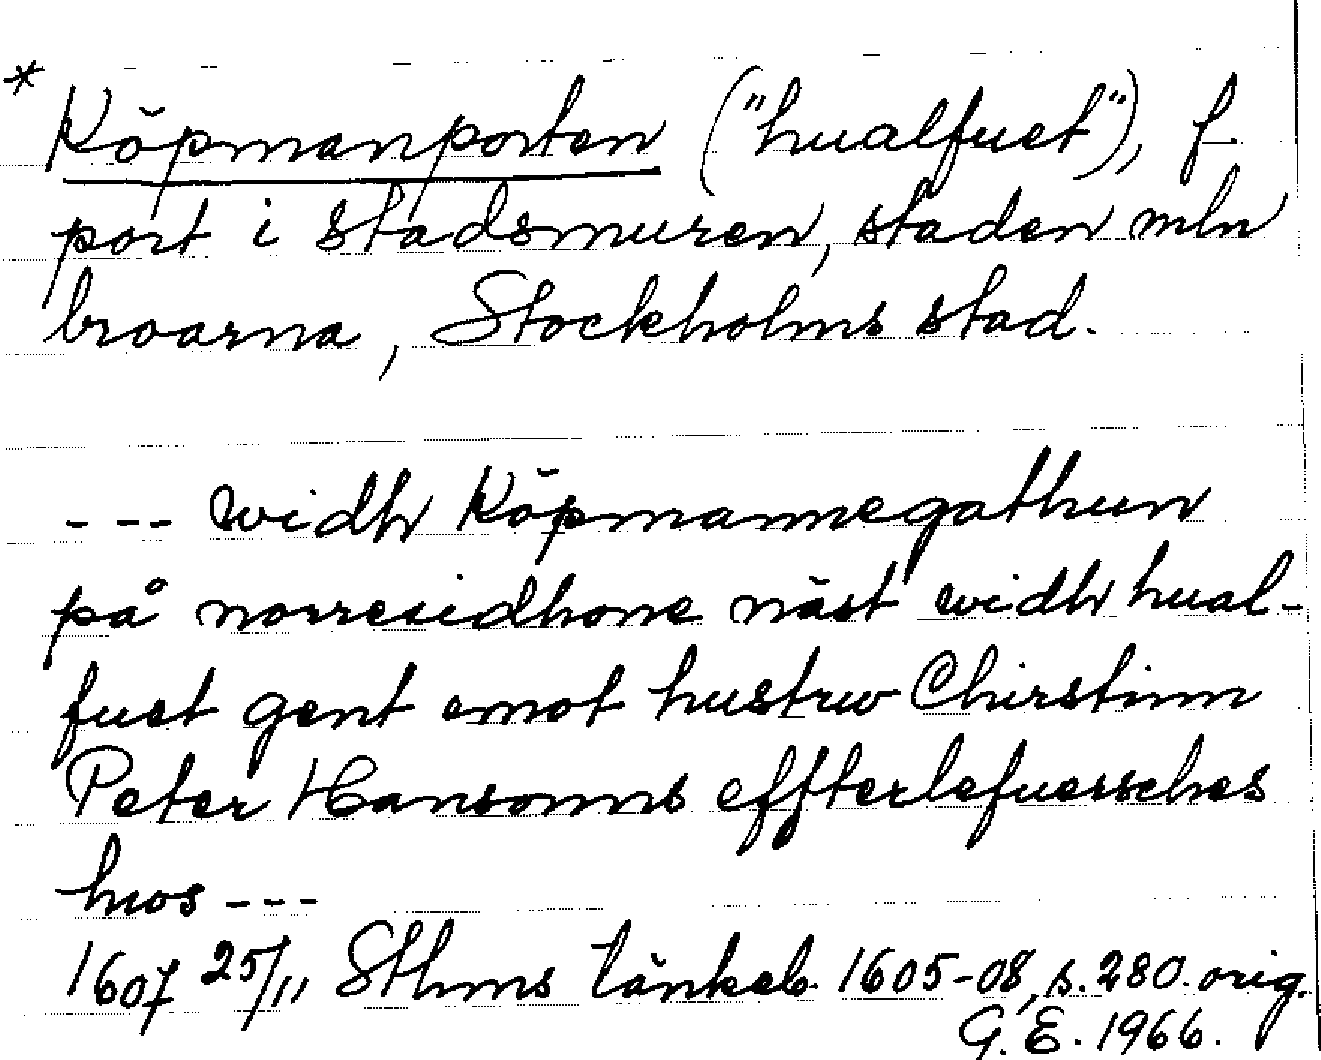 * Köpmanporten ("hualfuet"), f.
port i stadsmuren, staden mln
broarna, Stockholms stad.
--- widh Köpmannegathun
på norresidhone näst widh hual-
fuet gent emot hustrw Chirstinn
Peter Hansonns effterlefuessches
hws ---
1607 25/11 Sthms tänkeb. 1605-08, s. 280. orig.
G. E. 1966.